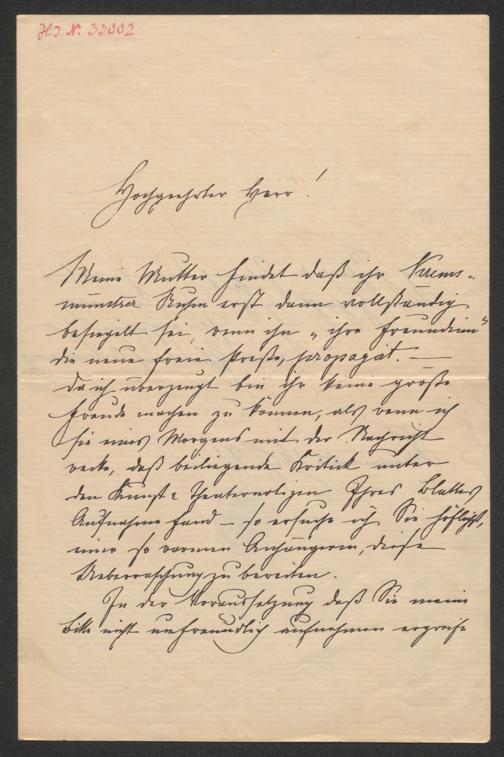 H.I.N. 33002
Hochgeehrter Herr!
Meine Mutter findet daß ihr Krems-
münster Ruhm erst dann vollständig
besiegelt sei, wenn ihn „ihre Freundinn"
die neue freie Preße, propagirt. —
Da ich überzeugt bin ihr keine größre
Freude machen zu können, als wenn ich
sie eines Morgens mit der Nachricht
wecke, daß beiliegende Kritick unter
den Kunst & Theaternotizen Ihres Blattes
Aufnahme fand – so ersuche ich Sie höflichst,
einer so warmen Anhängerin, diese
Ueberraschung zu bereiten.
In der Voraussetzung daß Sie meine
Bitte nicht unfreundlich aufnehmen ergreife